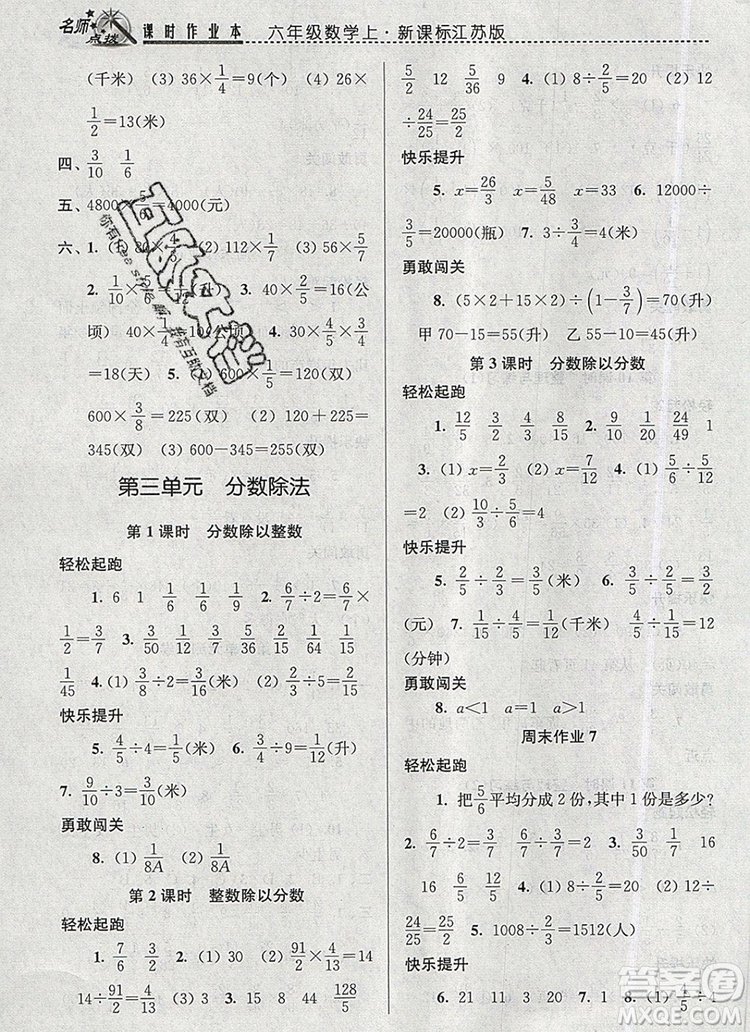 名师点拨 课时作业本 六年级数学上·新课标江苏版
(千米) (3) 36×1/4=9(个) (4) 26×
1/2=13(米)
四、3/10 1/6
五、4800×5/6=4000(元)
六、1. (2) 112×1/7 (3) 56×5/7
2. 3. 40×2/5=16(公
顷) 40×1/4=10(公顷) 4.
=18(天) 5. (1) 600×1/5=120(双)
600×3/8=225(双) (2) 120+225=
345(双) (3) 600-345=255(双)
第三单元 分数除法
第1课时 分数除以整数
轻松起跑
1. 6 1 1/6 1/6 1/9 2. 6/7÷2=6/7×
1/2=3/7 3. 3/50 1/34 1/15 8/35 1/64 1/20
1/45 4. (1) 3/5÷2=3/10(米) (2) 3/5÷2=3/10
快乐提升
5. 4/5÷4=1/5(米) 6. 1/2÷6=1/12(升)
7. 9/10÷3=3/10(米)
勇敢闯关
8. (1) 1/8A (2) 1/8A
第2课时 整数除以分数
轻松起跑
1. 7/6 3/2 2. (1) 91/2×2/13=14
14÷91/2=4/13 (2) 30 24 15 28 3. 12
5/2 16 12/5 5/36 9 4. (1) 8÷2/5=20 (2) 24/25
÷24/25=25/2
快乐提升
5. x=26/3 x=5/48 x=33 6. 12000÷
3/5=20000(瓶) 7. 3÷3/4=4(米)
勇敢闯关
8. (5×2+15×2)÷(1-3/7)=70(升)
甲 70-15=55(升) 乙 55-10=45(升)
第3课时 分数除以分数
轻松起跑
1. 12/5 3/2 4/3 8/15 2. 9/10 12/25 24/49 1
3. (1) 6/7÷2/3=9/7 (2) 5/6 4. (1) 5/6÷5/12
=2 (2) 10/3÷5/6=4
快乐提升
5. 1/15÷2/5=1/6(米) 6. 3/2÷3/5=5/2
(元) 7. 1/15÷4/5=1/12(米) 4/5÷1/15=12
(分钟)
勇敢闯关
8. a<1 a=1 a>1
周末作业7
轻松起跑
1. 把5/6平均分成2份,其中1份是多少?
2. 6/7÷2=6/7×1/2=3/7 3. 3/50 1/34 1/15 16
12 16 5/36 4. (1) 8÷2/5=20 (2) 24/25÷
24/25=25/2 5. 1008÷2/3=1512(人)
快乐提升
6. 21 11 3 20 7. 1 8. (1) 4/5÷4